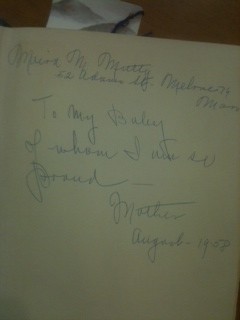 M. Mutty
Adams St. Melrose
Mass
To My Baby
of whom I am so
Proud —
Mother
August - 1958